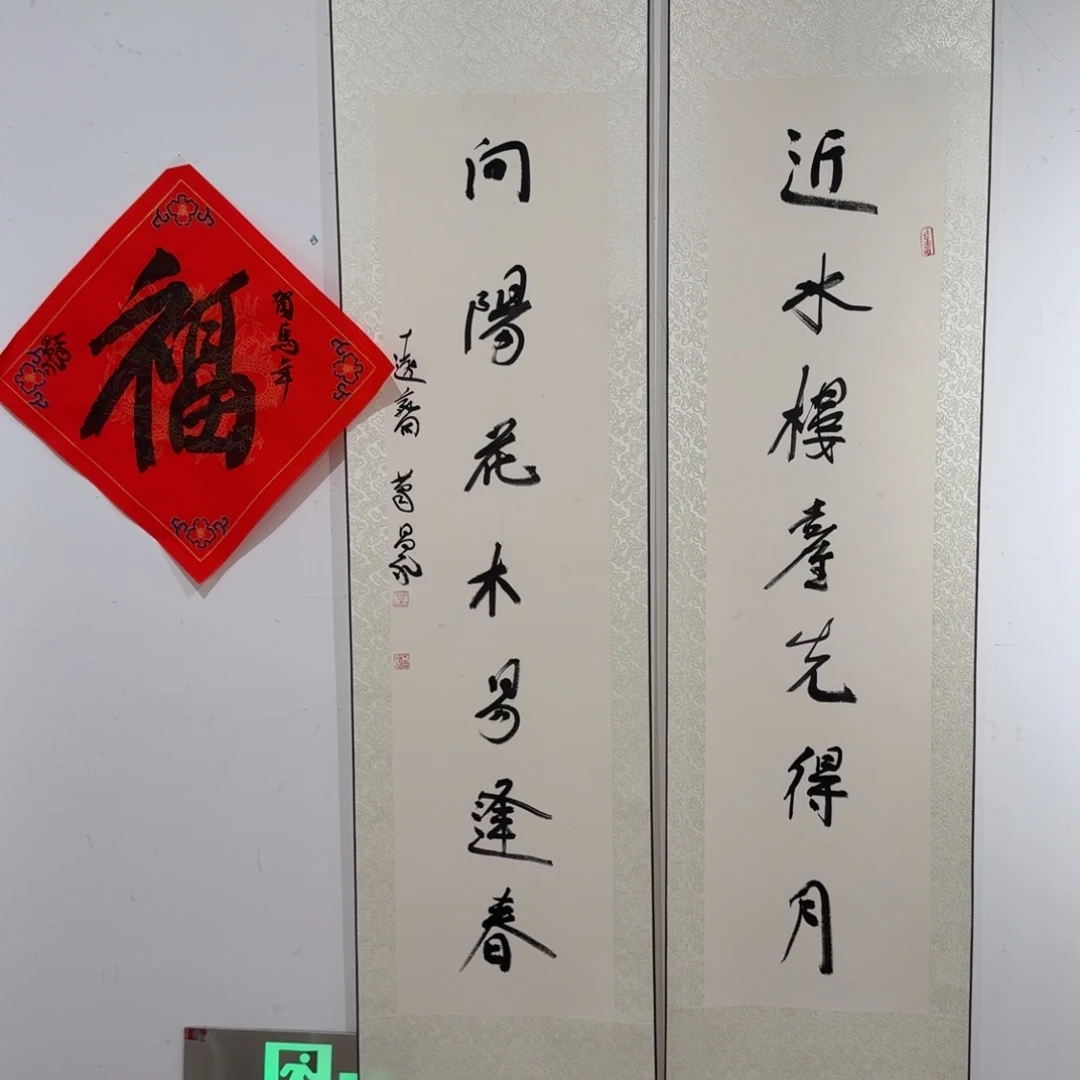 近水樓臺先得月
向陽花木易逢春
福
賀馬年